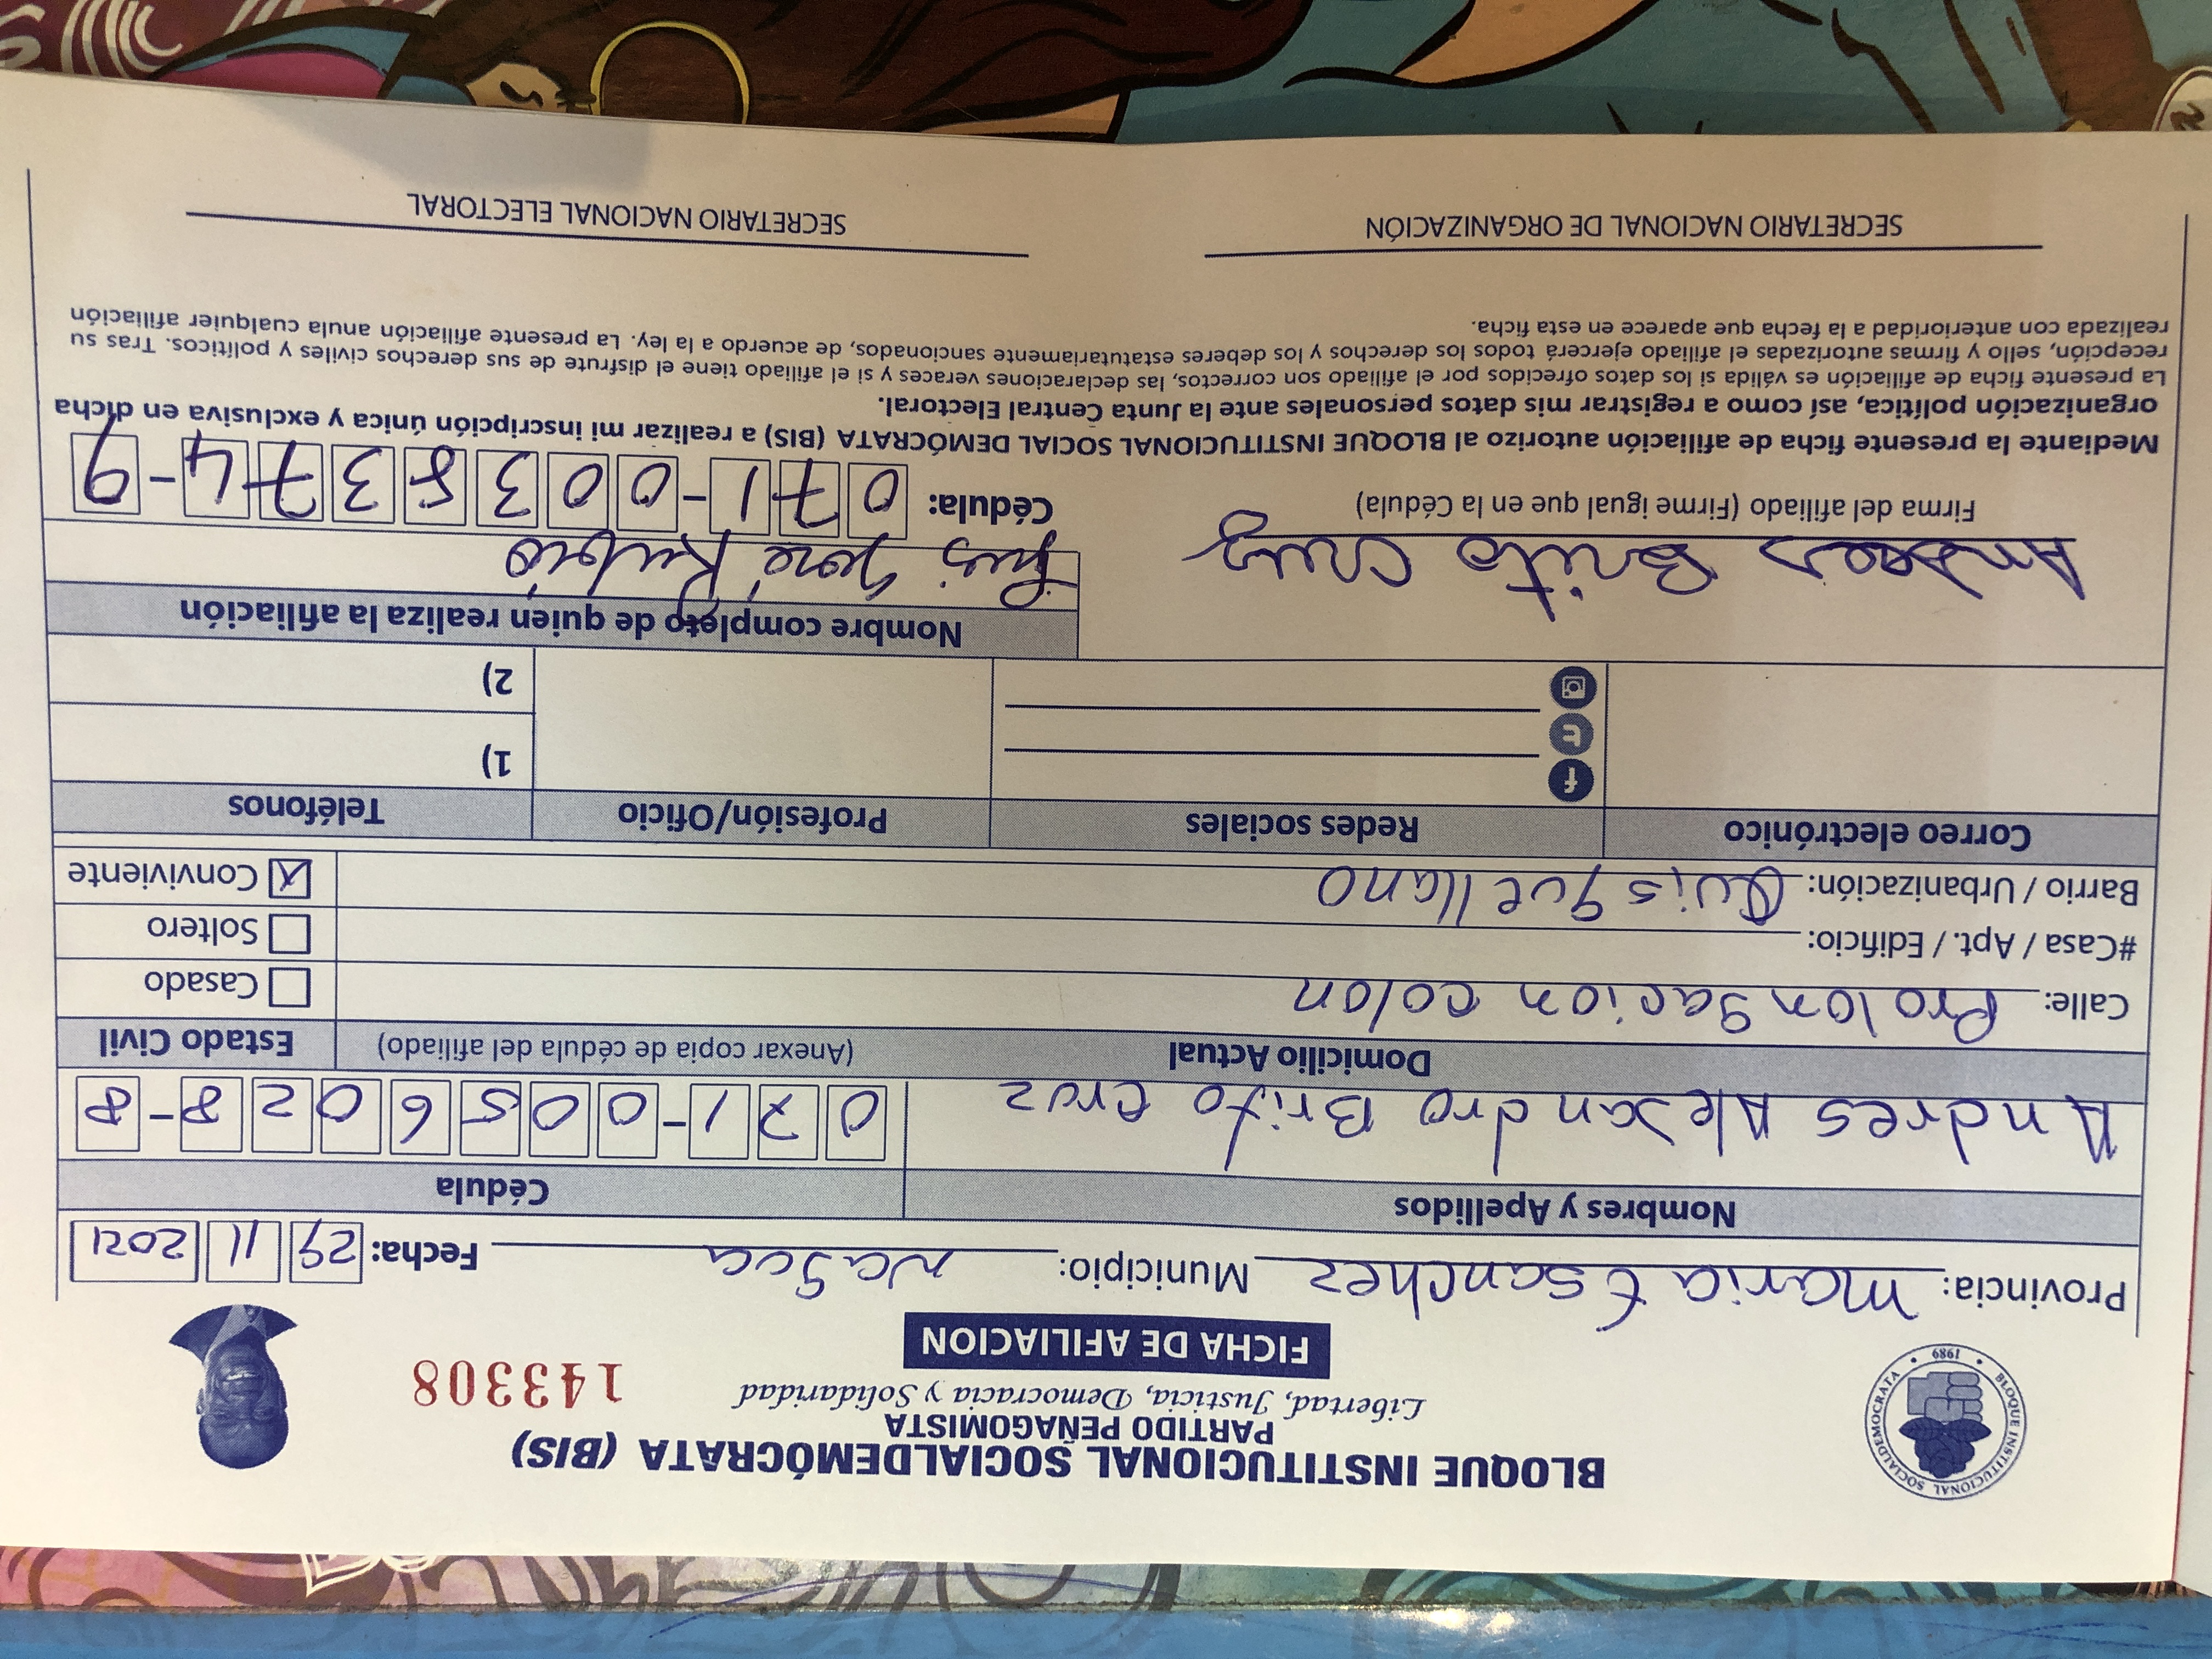 BLOQUE INSTITUCIONAL SOCIALDEMÓCRATA (BIS)
PARTIDO PEÑAGOMISTA
Libertad, Justicia, Democracia y Solidaridad
143308
FICHA DE AFILIACION
BLOQUE INSTITUCIONAL SOCIALDEMOCRATA • 1989 •
Provincia: Maria t Sanchez Municipio: Nagua Fecha: 29 11 2021
Nombres y Apellidos Cédula
Andres Alejandro Brito Cruz 071-0056028-8
Domicilio Actual (Anexar copia de cédula del afiliado) Estado Civil
Calle: Prolongacion colon Casado
#Casa / Apt. / Edificio: Soltero
Barrio / Urbanización: Quisquellano Conviviente X
Correo electrónico Redes sociales Profesión/Oficio Teléfonos
1)
2)
Nombre completo de quien realiza la afiliación
Andres Brito Cruz Luis José Rubio
Firma del afiliado (Firme igual que en la Cédula) Cédula: 071-0038374-9
Mediante la presente ficha de afiliación autorizo al BLOQUE INSTITUCIONAL SOCIAL DEMÓCRATA (BIS) a realizar mi inscripción única y exclusiva en dicha
organización política, así como a registrar mis datos personales ante la Junta Central Electoral.
La presente ficha de afiliación es válida si los datos ofrecidos por el afiliado son correctos, las declaraciones veraces y si el afiliado tiene el disfrute de sus derechos civiles y políticos. Tras su
recepción, sello y firmas autorizadas el afiliado ejercerá todos los derechos y los deberes estatutariamente sancionados, de acuerdo a la ley. La presente afiliación anula cualquier afiliación
realizada con anterioridad a la fecha que aparece en esta ficha.
SECRETARIO NACIONAL DE ORGANIZACIÓN SECRETARIO NACIONAL ELECTORAL